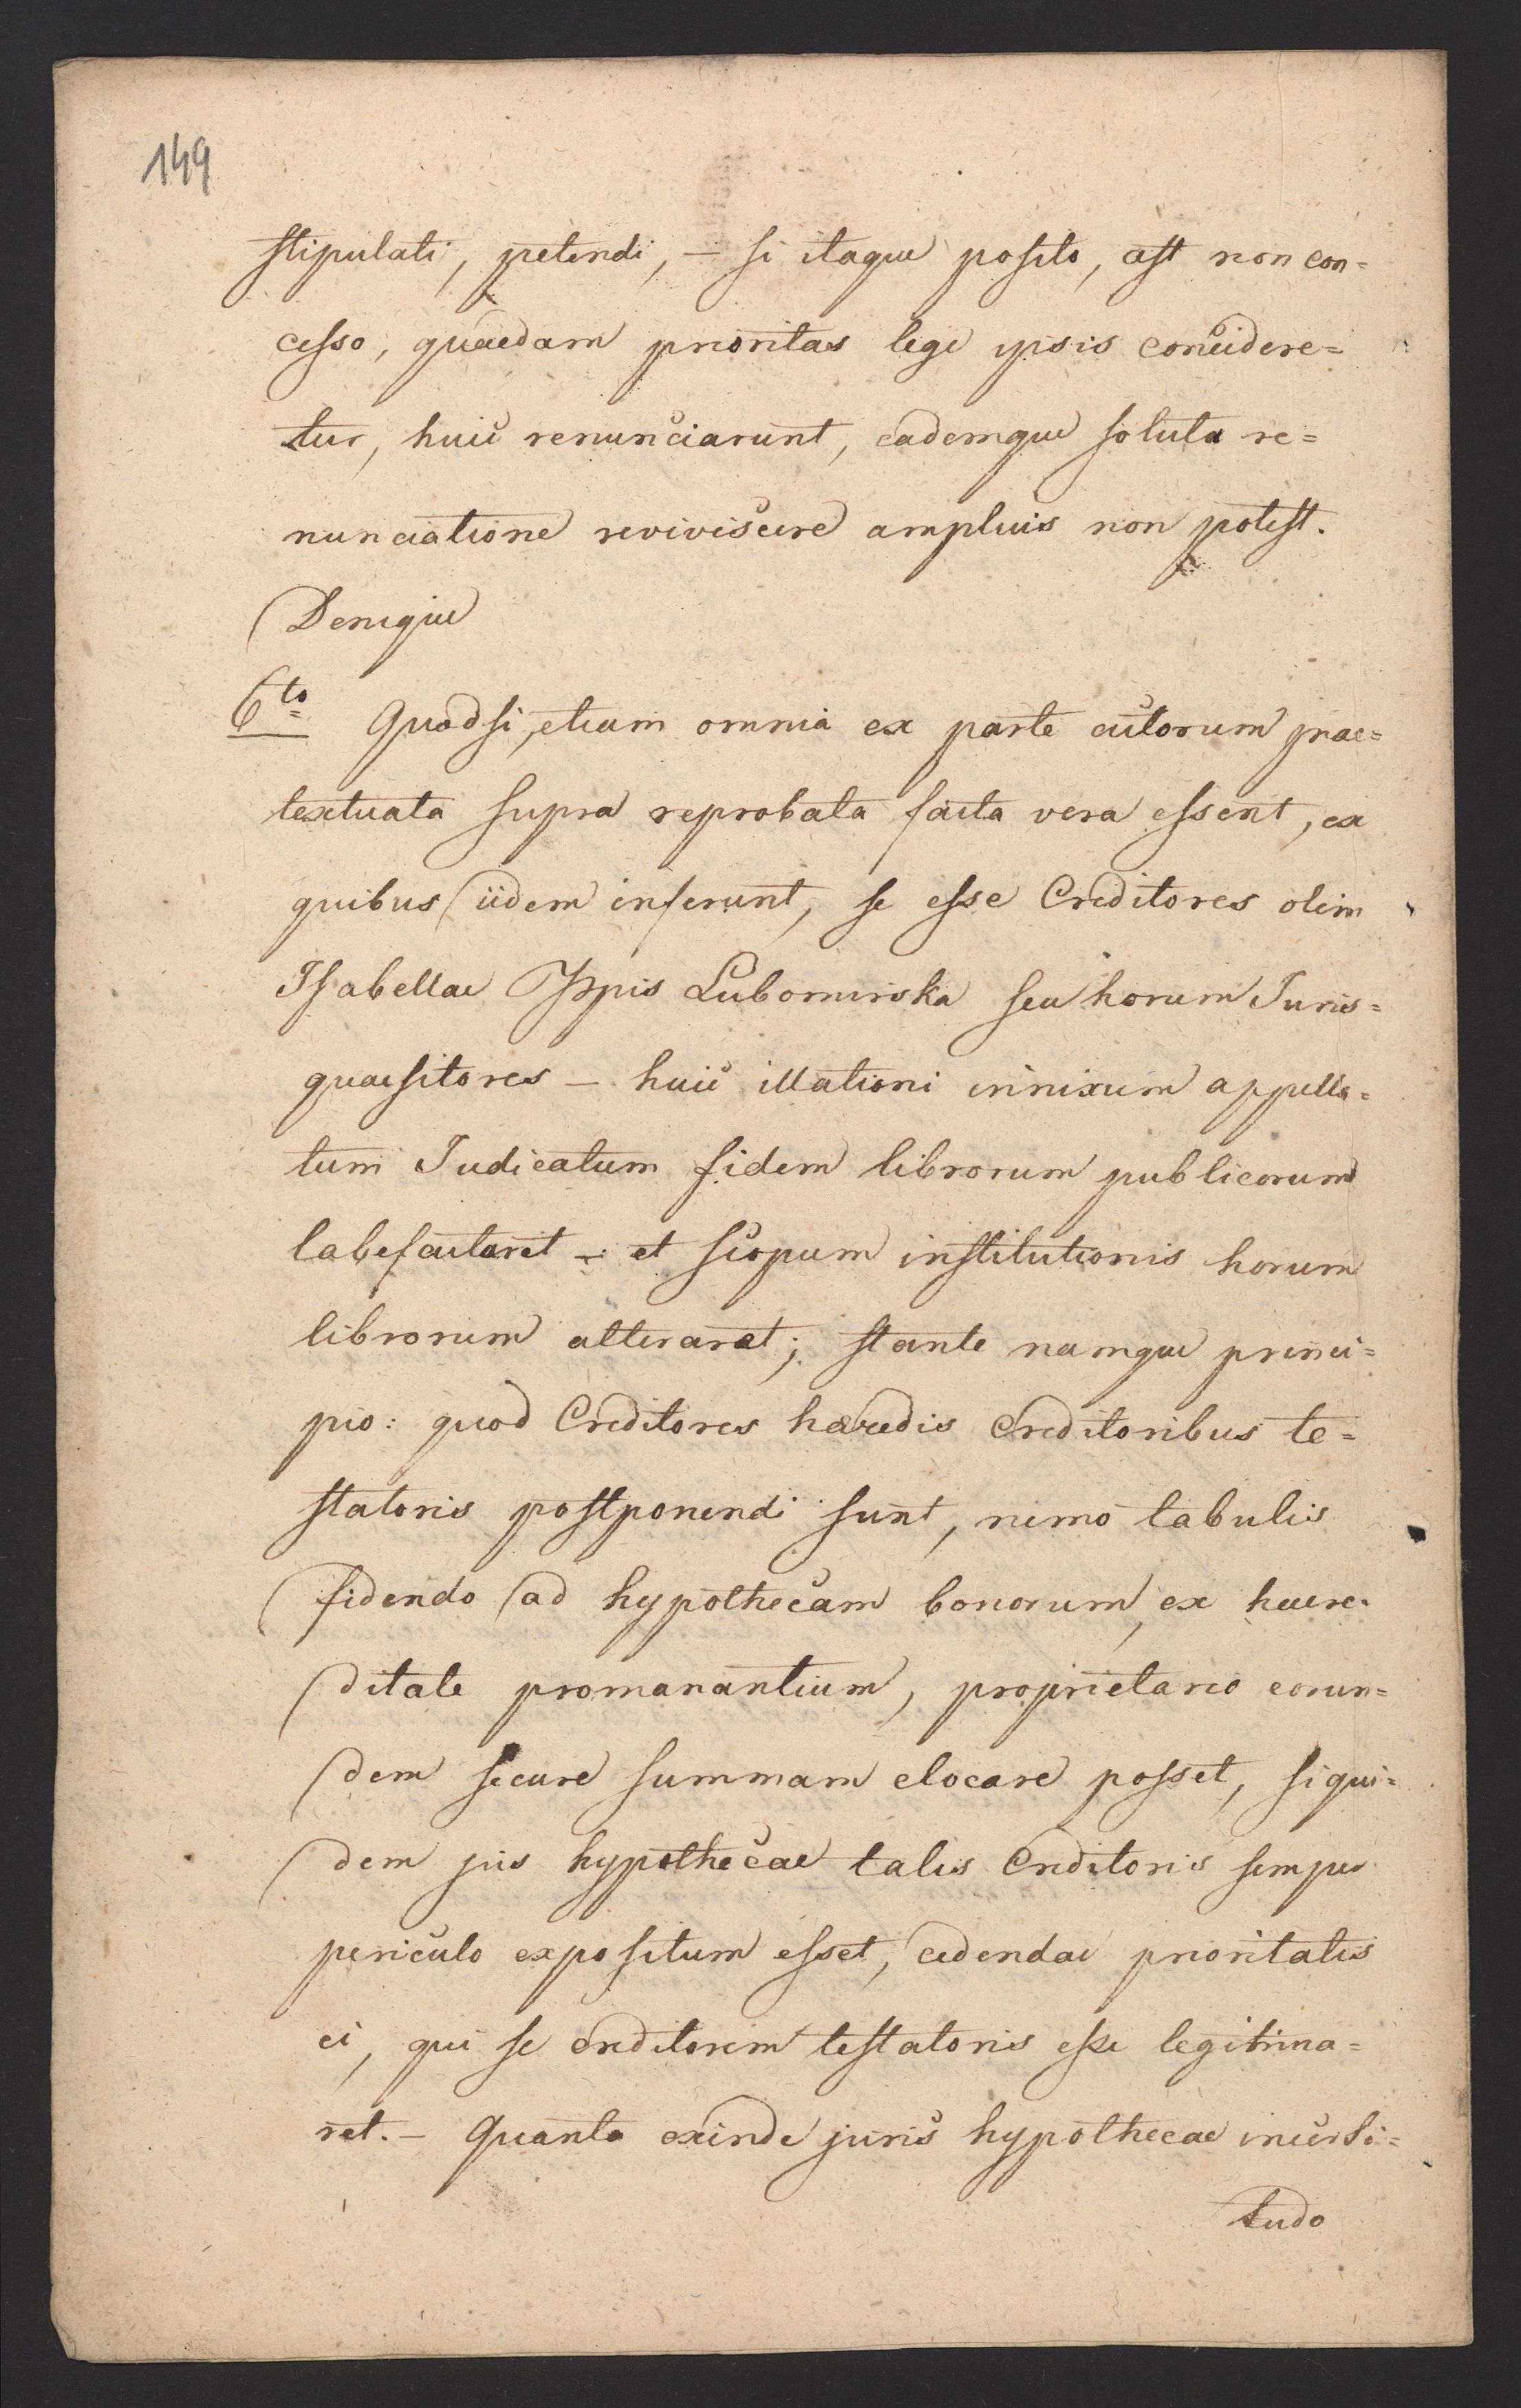 149
stipulati, petendi, – si itaque posito, ast non con=
cesso, quaedam prioritas lege ipsis concedere=
tur, huic renunciarunt, eademque soluta re=
nunciatione reviviscere amplius non potest.
Denique
6to Quodsi, etiam omnia ex parte actorum prae=
textuata supra reprobata facta vera essent, ex
quibus iidem inferunt, se esse Creditores olim
Isabellae Ppis Lubomirska seu horum Juris=
quaesitores – huic illationi innixum appella=
tum Judicatum fidem librorum publicorum
labefactaret – et scopum institutionis horum
librorum alteraret; stante namque princi=
pio: quod Creditores haeredis Creditoribus te=
statoris postponendi sunt, nemo tabulis
fidendo ad hypothecam bonorum, ex haere=
ditate promanantium, proprietario eorun=
dem secure summam elocare posset, siqui=
dem jus hypothecae talis Creditoris semper
periculo expositum esset, cedendae prioritatis
ei, qui se creditorem testatoris esse legitima=
ret. – Quanta exinde juris hypothecae incerti=
tudo